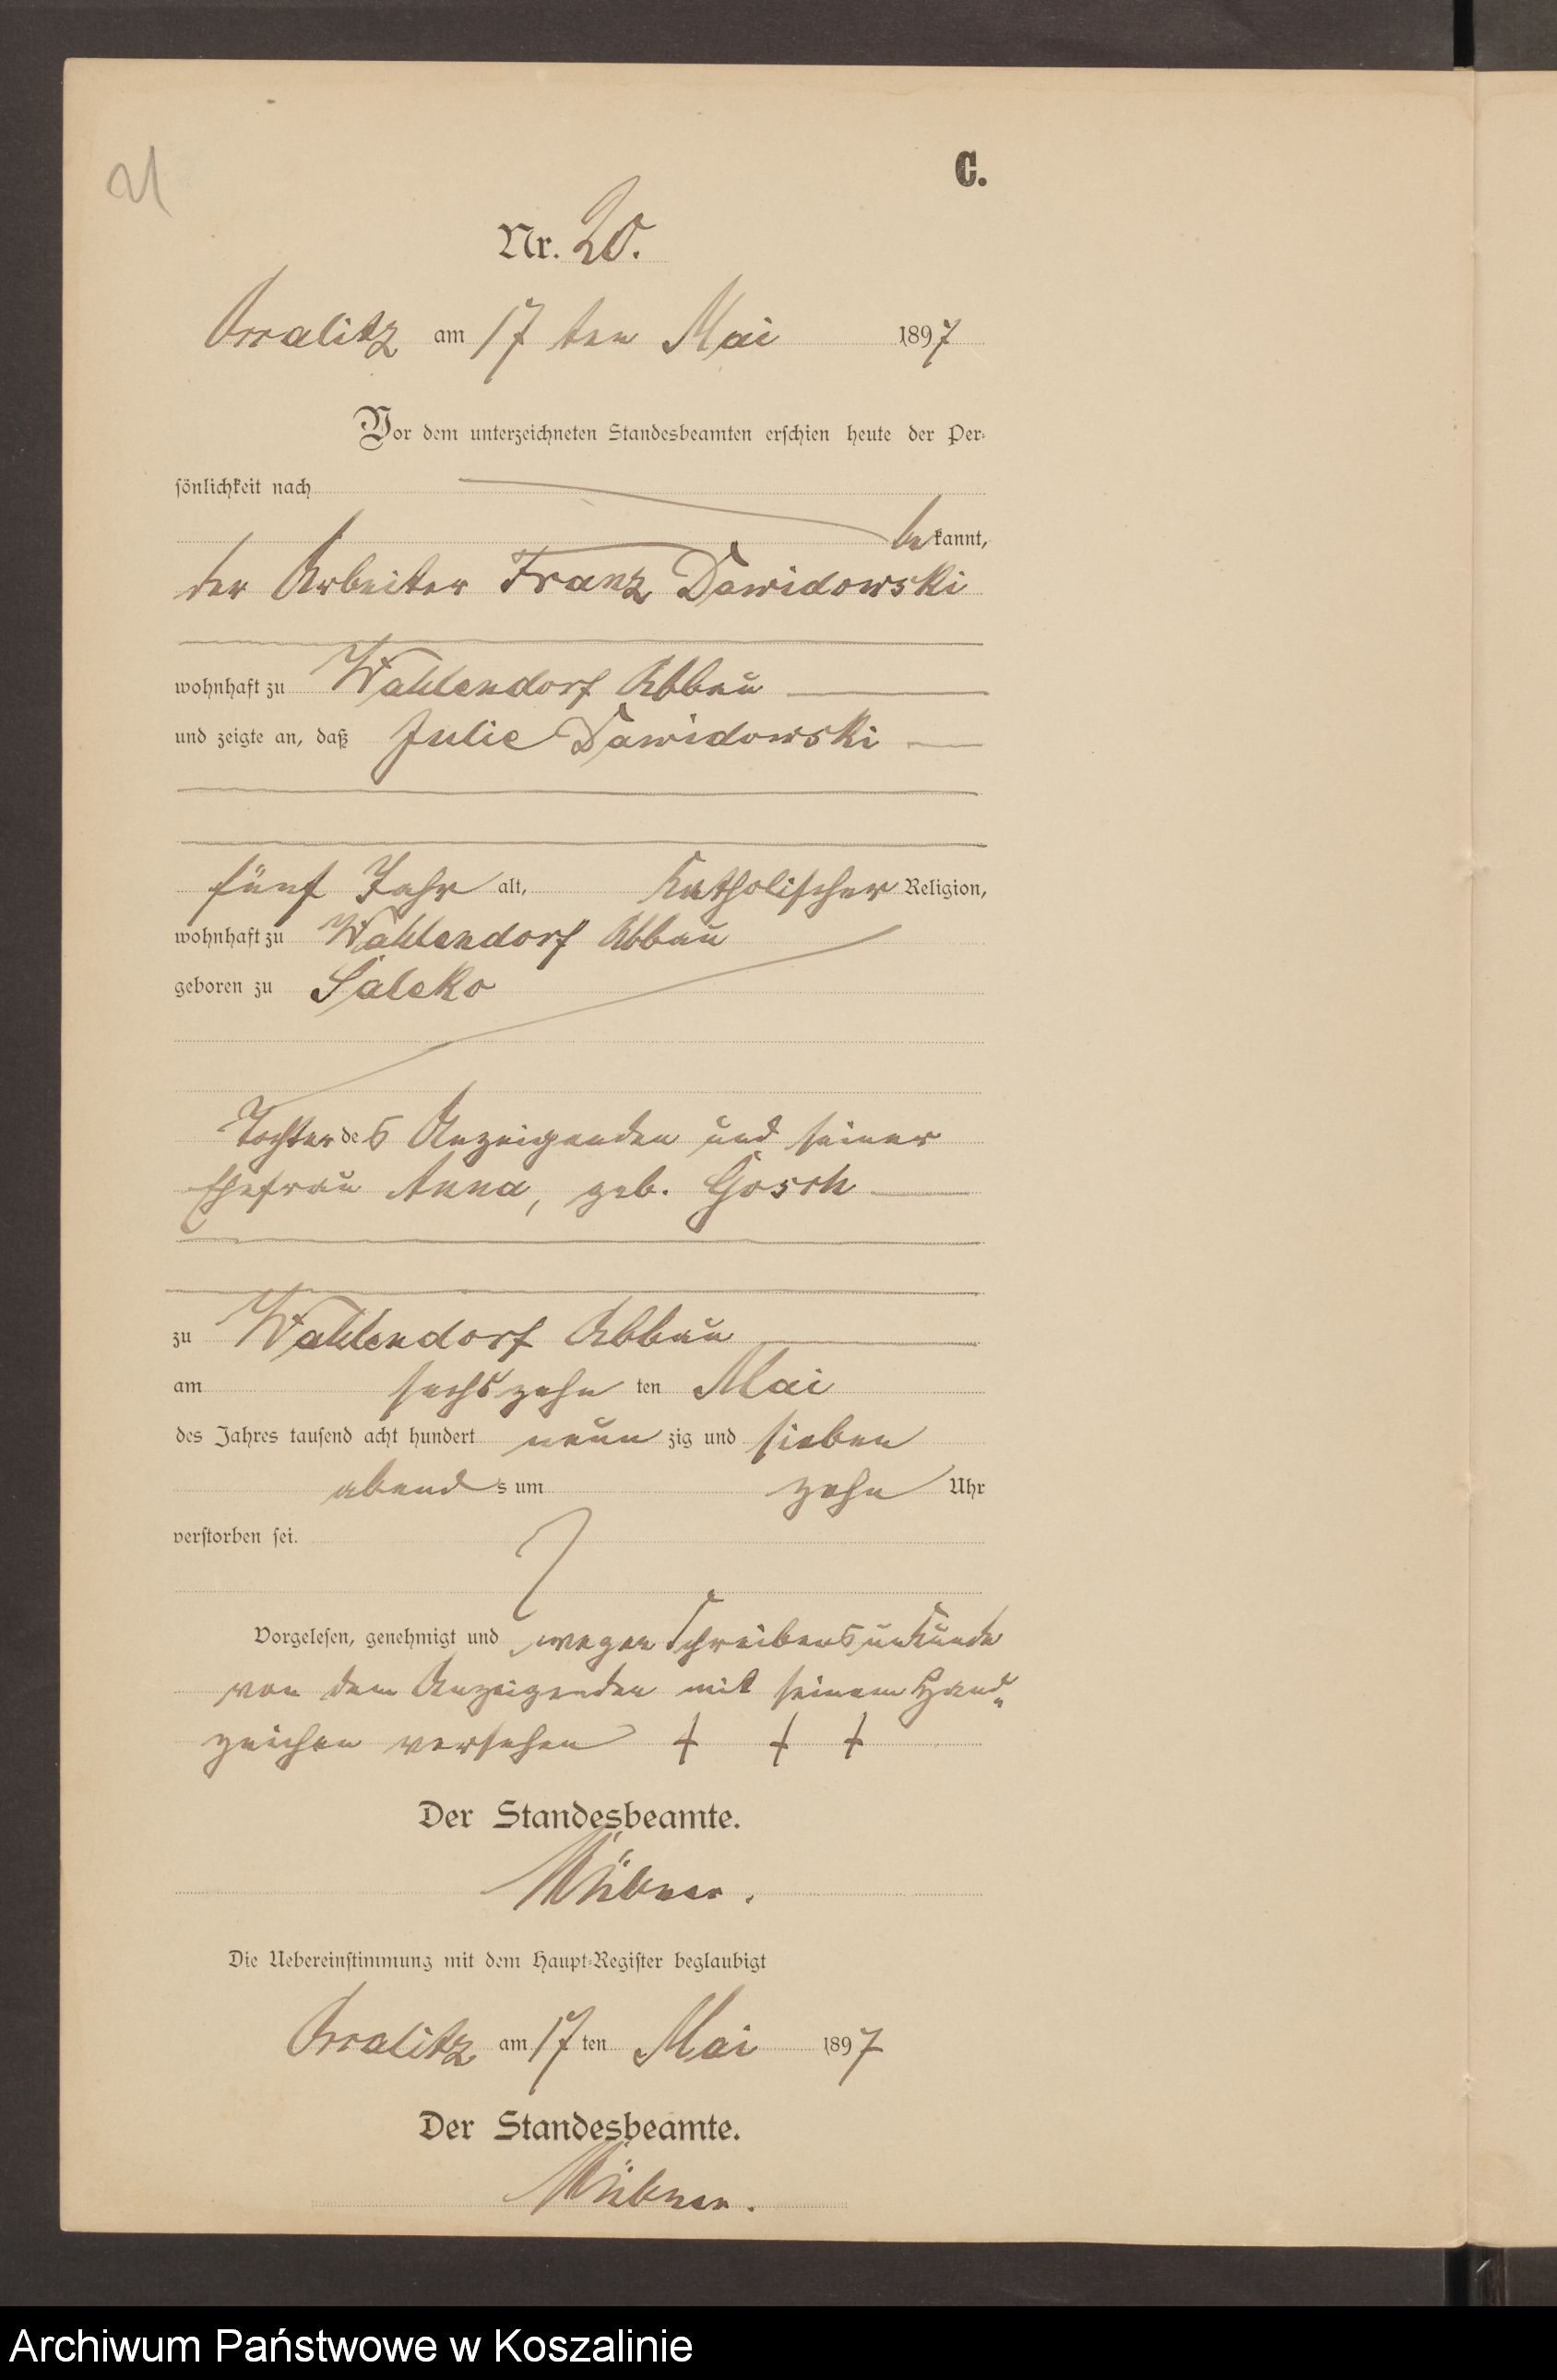 21
C.
Nr. 20.
am 17 ten Mai 1897
Vor dem unterzeichneten Standesbeamten erschien heute der Per-
sönlichkeit nach
bekannt,
der Arbeiter Franz Dawidowski
wohnhaft zu Wahlendorf Abbau
und zeigte an, daß Julie Dawidowski
fünf Jahr alt, Katholischer Religion,
wohnhaft zu Wahlendorf Abbau
geboren zu Saleko
Tochter des Anzeigenden und seiner
Ehefrau Anna, geb. Gosch
zu Wahlendorf Abbau
am sechszehn ten Mai
des Jahres tausend acht hundert neun zig und sieben
abend s um zehn Uhr
verstorben sei.
Vorgelesen, genehmigt und wegen Schreibensunkunde
von dem Anzeigenden mit seinem Hand„
zeichen versehen + + +
Der Standesbeamte.
Die Uebereinstimmung mit dem Haupt-Register beglaubigt
am 17 ten Mai 1897
Der Standesbeamte.
Archiwum Państwowe w Koszalinie